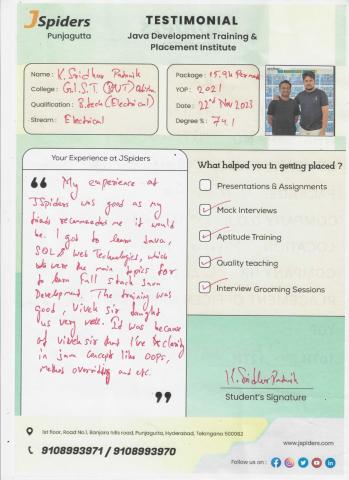 JSpiders
Punjagutta
TESTIMONIAL
Java Development Training &
Placement Institute
Name : K. Sridhar Patnaik
College : G.I.S.T (BPUT) Odisha
Qualification : B.tech (Electrical)
Stream : Electrical
Package :
YOP : 2021
Date : 22nd Nov 2023
Degree % : 74%
Your Experience at JSpiders
My experience at
JSpiders was good as my
friends recommended me it would
be. I got to learn Java,
SQL & Web Technologies, which
were the main topics for
to learn Full Stack Java
Development. The training was
good, Vivek sir taught
us very well. It was because
of Vivek sir that I've clarity
in java concepts like OOPs,
Method overriding and etc.
What helped you in getting placed ?
Presentations & Assignments
Mock Interviews
Aptitude Training
Quality teaching
Interview Grooming Sessions
K. Sridhar Patnaik
Student's Signature
1st floor, Road No.1, Banjara hills road, Punjagutta, Hyderabad, Telangana 500082
9108993971 / 9108993970
www.jspiders.com
Follow us on :